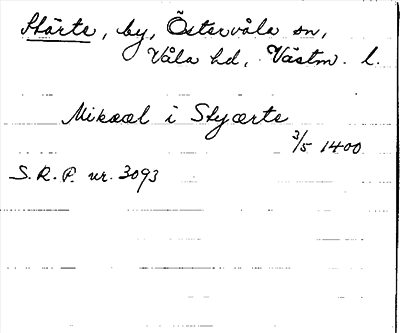 Stärte, by, Östervåla sn,
Våla hd, Västm. l.
Mikael i Styærte
3/5 1400
S.R.P. nr. 3093